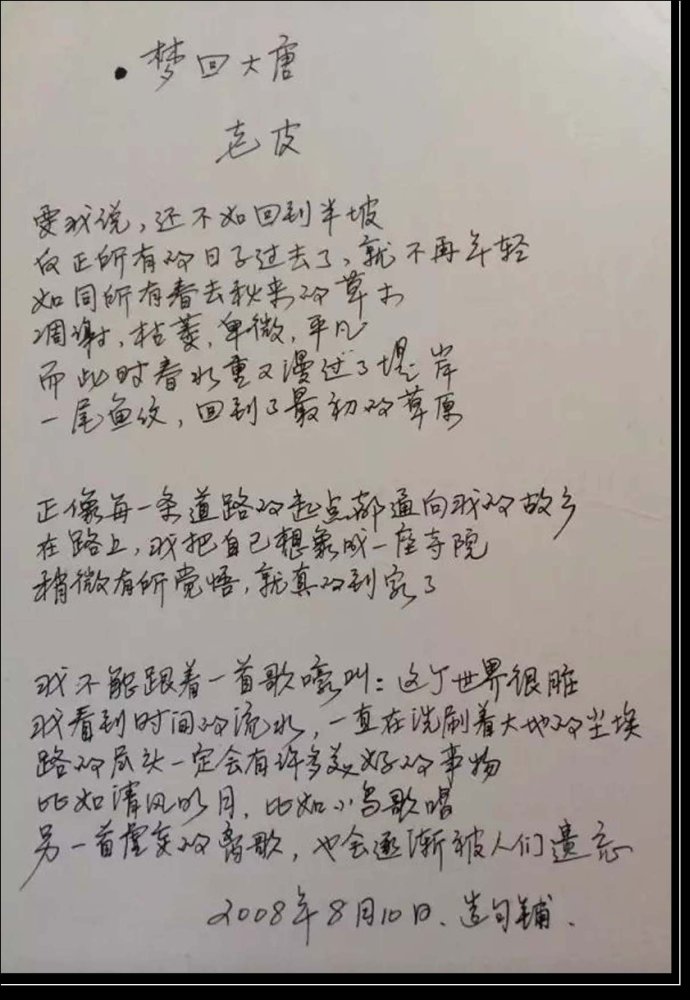 ·梦回大唐
老皮
要我说,还不如回到半坡
反正所有的日子过去了,就不再年轻
如同所有春去秋来的草木
凋谢,枯萎,卑微,平凡
而此时春水重又漫过了堤岸
一尾鱼纹,回到了最初的草原
正像每一条道路的起点都通向我的故乡
在路上,我把自己想象成一座寺院
稍微有所觉悟,就真的到家了
我不能跟着一首歌嚎叫:这个世界很脏
我看到时间的流水,一直在洗刷着大地的尘埃
路的尽头一定会有许多美好的事物
比如清风明月,比如小鸟歌唱
另一首虚妄的离歌,也会逐渐被人们遗忘
2008年8月10日、造句铺.